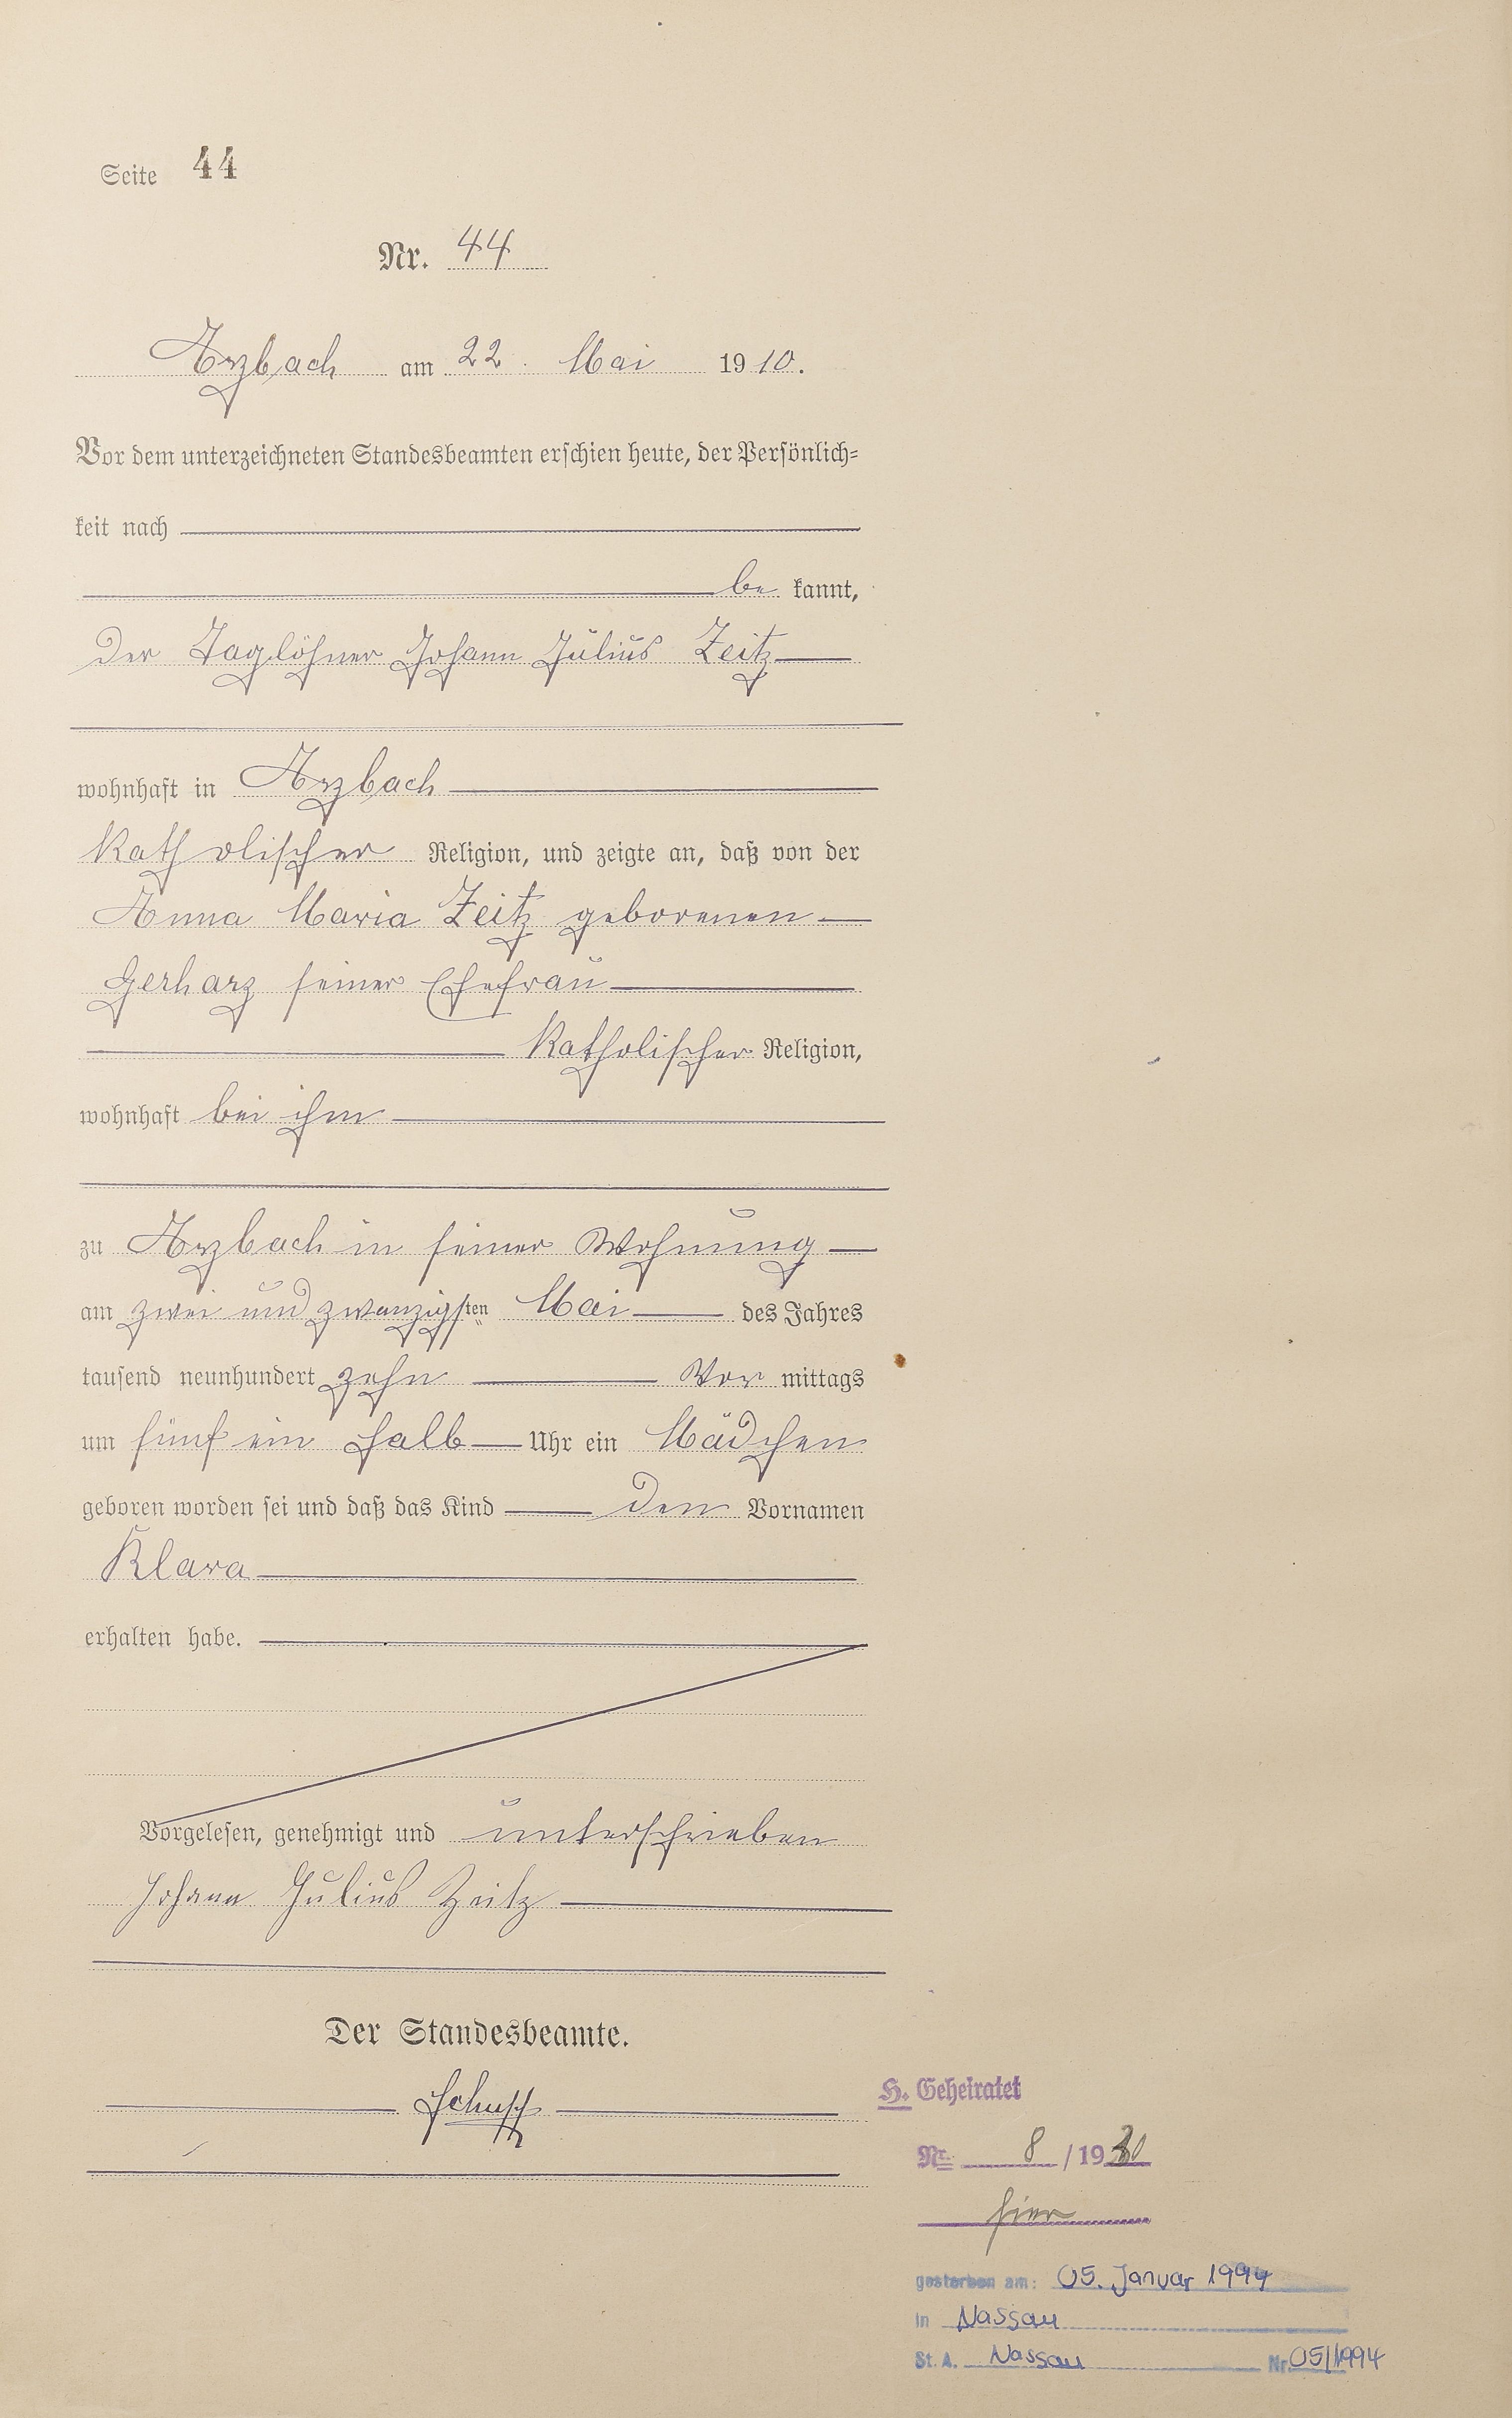 Seite 44
Nr. 44
Arzbach am 22. Mai 1910.
Vor dem unterzeichneten Standesbeamten erschien heute, der Persönlich-
keit nach
be kannt,
der Taglöhner Johann Julius Zeitz
wohnhaft in Arzbach
katholischer Religion, und zeigte an, daß von der
Anna Maria Zeitz geborenen
Gerharz seiner Ehefrau
katholischer Religion,
wohnhaft bei ihm
zu Arzbach in seiner Wohnung
am zwei und zwanzigsten Mai des Jahres
tausend neunhundert zehn Vor mittags
um fünf ein halb Uhr ein Mädchen
geboren worden sei und daß das Kind den Vornamen
Klara
erhalten habe.
Vorgelesen, genehmigt und unterschrieben
Johann Julius Zeitz
Der Standesbeamte.
H. Geheiratet
Nr. 8 / 19
hier
gestorben am: 05. Januar 1994
in Nassau
St. A. Nassau Nr. 05/1994